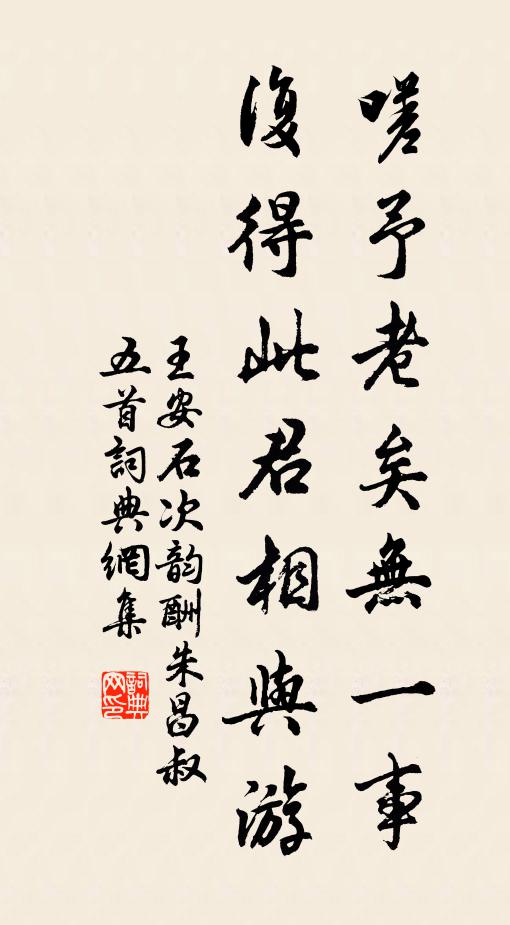 嗟予老矣無一事
復得此君相與游
王安石次韵酬朱昌叔
五首詞典網集
詞典網印